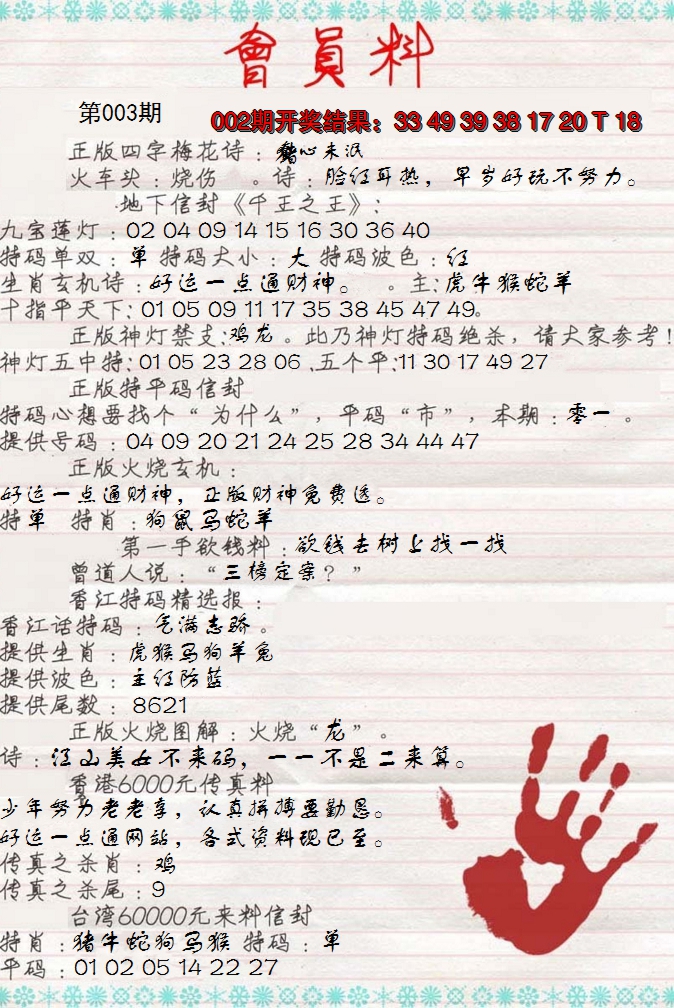 會員料
第003期
002期开奖结果：33 49 39 38 17 20 T 18
正版四字梅花诗：心未泯
火车头：烧伤 。诗：脸红耳热，早岁好玩不努力。
地下信封《千王之王》：
九宝莲灯：02 04 09 14 15 16 30 36 40
特码单双：单 特码大小：大 特码波色：红
生肖玄机诗：好运一点通财神。 。主：虎牛猴蛇羊
十指平天下：01 05 09 11 17 35 38 45 47 49。
正版神灯禁支：鸡龙。此乃神灯特码绝杀，请大家参考！
神灯五中特：01 05 23 28 06 .五个平：11 30 17 49 27
正版特平码信封
特码心想要找个“为什么”，平码“市”，本期：零一 。
提供号码：04 09 20 21 24 25 28 34 44 47
正版火烧玄机：
好运一点通财神，正版财神免费送。
特单 特肖：狗鼠马蛇羊
第一手欲钱料：欲钱去树上找一找
曾道人说：“三榜定案？”
香江特码精选报：
香江话特码：气满志骄。
提供生肖：虎猴马狗羊兔
提供波色：主红防蓝
提供尾数：8621
正版火烧图解：火烧“龙”。
诗：江山美女不来码，一一不是二来算。
香港6000元传真料
少年努力老老享，认真拼搏要勤恳。
好运一点通网站，各式资料现已至。
传真之杀肖：鸡
传真之杀尾：9
台湾60000元来料信封
特肖：猪牛蛇狗马猴 特码：单
平码：01 02 05 14 22 27